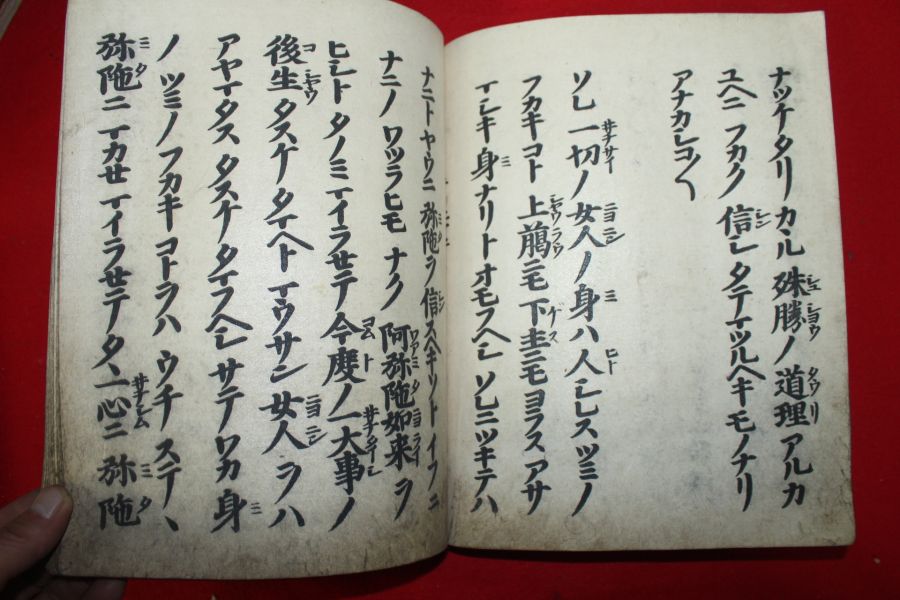 ナツケタリ カヽル 殊勝ノ 道理 アルカ
ユヘニ フカク 信シ タテマツルヘキ モノナリ
アナカシコ〱
ソレ 一切ノ 女人ノ 身ハ 人シレス ツミノ
フカキコト 上臈ニモ 下主ニモ ヨラス アサ
マシキ 身 ナリト オモフヘシ ソレニツキテハ
ナニト ヤウニ 弥陀ヲ 信スヘキソト イフニ
ナニノ ワツラヒモ ナク 阿弥陀如来ヲ
ヒシト タノミ マイラセテ 今度ノ 一大事ノ
後生 タスケ タマヘト マウサン 女人ヲハ
アヤマタス タスケ タマフヘシ サテ ワカ 身
ノ ツミノ フカキ コトヲハ ウチ ステヽ
弥陀ニ マカセ マイラセテ タヽ 一心ニ 弥陀